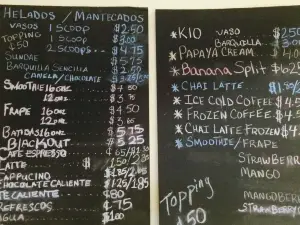 HELADOS / MANTECADOS
VASOS 1 SCOOP $2.50
TOPPING 1 SCOOP $2.00
$.50 2 SCOOPS $4.75
SUNDAE $5.75
BARQUILLA SENCILLA $2.00
CANELA/CHOCOLATE
SMOOTHIE 16 onz. $4.50
12 onz. $3.75
FRAPE 16 onz $4.50
12 onz $3.75
BATIDAS 16 onz $5.75
BLACKOUT $5.25
CAFE ESPRESSO
LATTE
CAPPUCINO
CHOCOLATE CALIENTE
TE CALIENTE $.80
REFRESCOS $.75
AGUA $1.00
*KIO VASO $2.50
BARQUILLA
*PAPAYA CREAM
*BANANA SPLIT
*CHAI LATTE
*ICE COLD COFFEE
*FROZEN COFFEE
*CHAI LATTE FROZEN
*SMOOTHIE/FRAPE
STRAWBERRY
MANGO
Topping
$.50
MANGO
STRAWBERRY